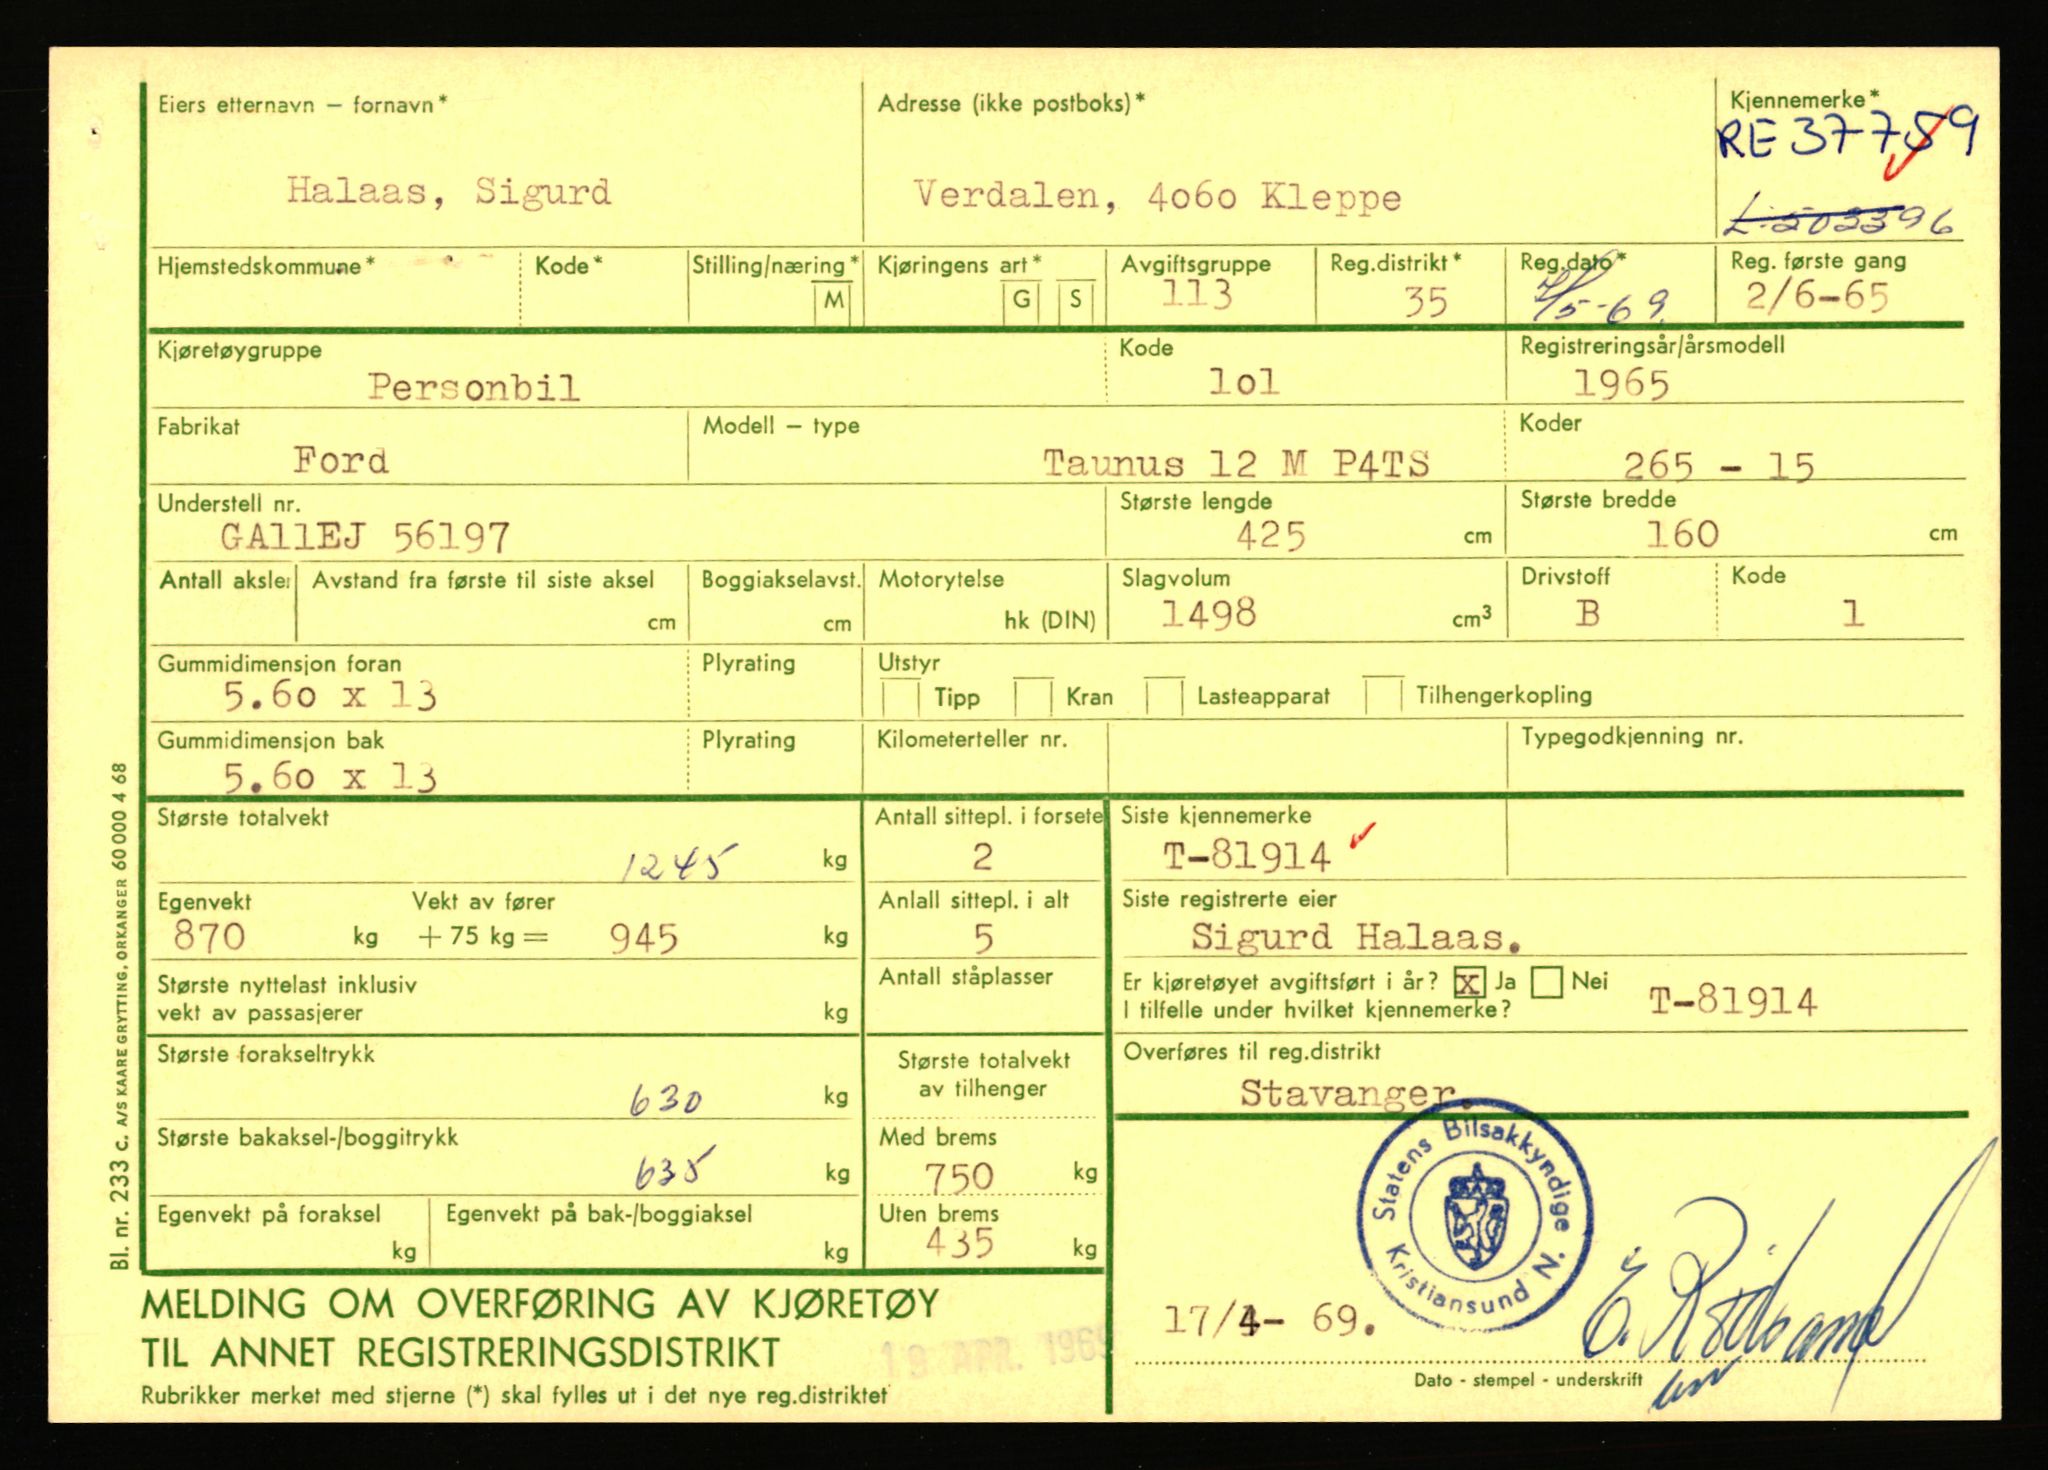 Eiers etternavn – fornavn*
Halaas, Sigurd
Adresse (ikke postboks)*
Verdalen, 4o6o Kleppe
Kjennemerke*
RE 37759
Hjemstedskommune*
Kode*
Stilling/næring*
M
Kjøringens art*
G S
Avgiftsgruppe
113
Reg.distrikt*
35
Reg.dato*
Reg. første gang
2/6-65
Kjøretøygruppe
Personbil
Kode
1o1
Registreringsår/årsmodell
1965
Fabrikat
Ford
Modell – type
Taunus 12 M P4TS
Koder
265 - 15
Understell nr.
GA11EJ 56197
Største lengde
425 cm
Største bredde
160 cm
Antall aksler
Avstand fra første til siste aksel
cm
Boggiakselavst.
cm
Motorytelse
hk (DIN)
Slagvolum
1498 cm³
Drivstoff
B
Kode
1
Gummidimensjon foran
5.6o x 13
Plyrating
Utstyr
Tipp Kran Lasteapparat Tilhengerkopling
Gummidimensjon bak
5.6o x 13
Plyrating
Kilometerteller nr.
Typegodkjenning nr.
Største totalvekt
1245 kg
Antall sittepl. i forsete
2
Siste kjennemerke
T-81914
Egenvekt
870 kg
Vekt av fører
+ 75 kg = 945 kg
Anlall sittepl. i alt
5
Siste registrerte eier
Sigurd Halaas.
Største nyttelast inklusiv
vekt av passasjerer kg
Antall ståplasser
Er kjøretøyet avgiftsført i år? x Ja Nei
I tilfelle under hvilket kjennemerke? T-81914
Største forakseltrykk
630 kg
Største totalvekt
av tilhenger
Overføres til reg.distrikt
Stavanger.
Største bakaksel-/boggitrykk
635 kg
Med brems
750 kg
Egenvekt på foraksel
kg
Egenvekt på bak-/boggiaksel
kg
Uten brems
435 kg
Statens Bilsakkyndige
Kristiansund N.
MELDING OM OVERFØRING AV KJØRETØY
TIL ANNET REGISTRERINGSDISTRIKT
19 APR. 1969
17/4- 69.
Rubrikker merket med stjerne (*) skal fylles ut i det nye reg.distriktet
Dato - stempel - underskrift
Bl. nr. 233 c. A/S KAARE GRYTTING, ORKANGER 60 000 4 68